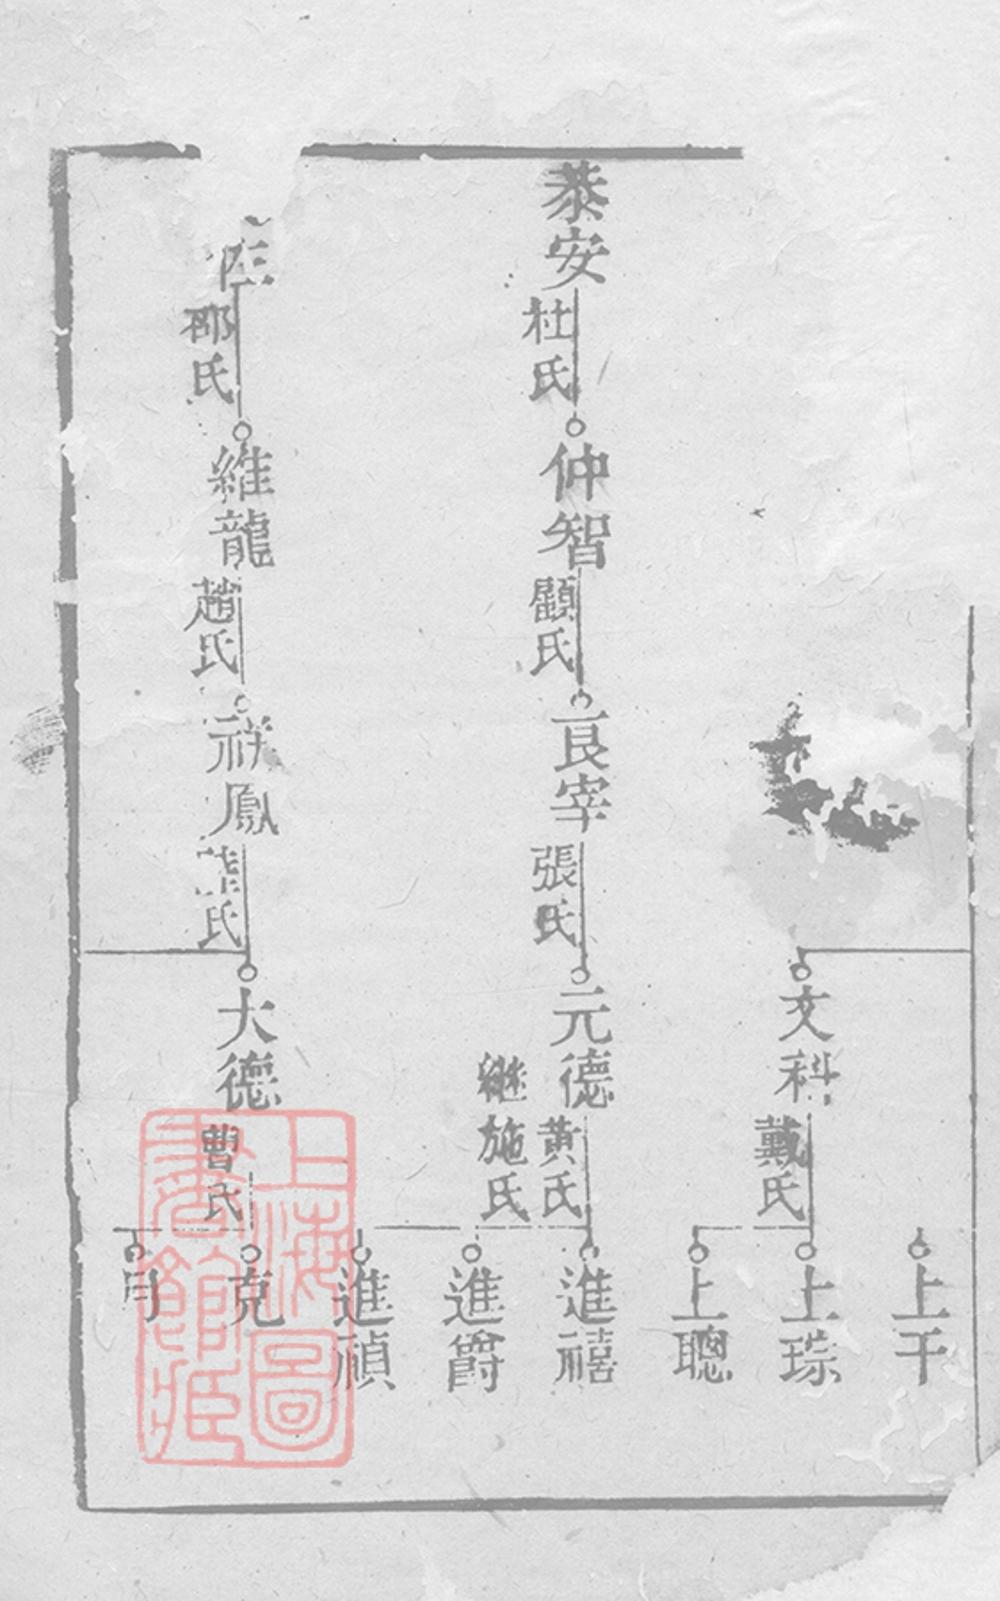 上干
文科
戴氏
上琮
上聰
泰安
杜氏
仲智
顧氏
良宰
張氏
元德
黃氏
継施氏
進禧
進爵
進禎
邵氏
維龍
趙氏
祥鳳
氏
大德
曹氏
克
上海圖
書館藏